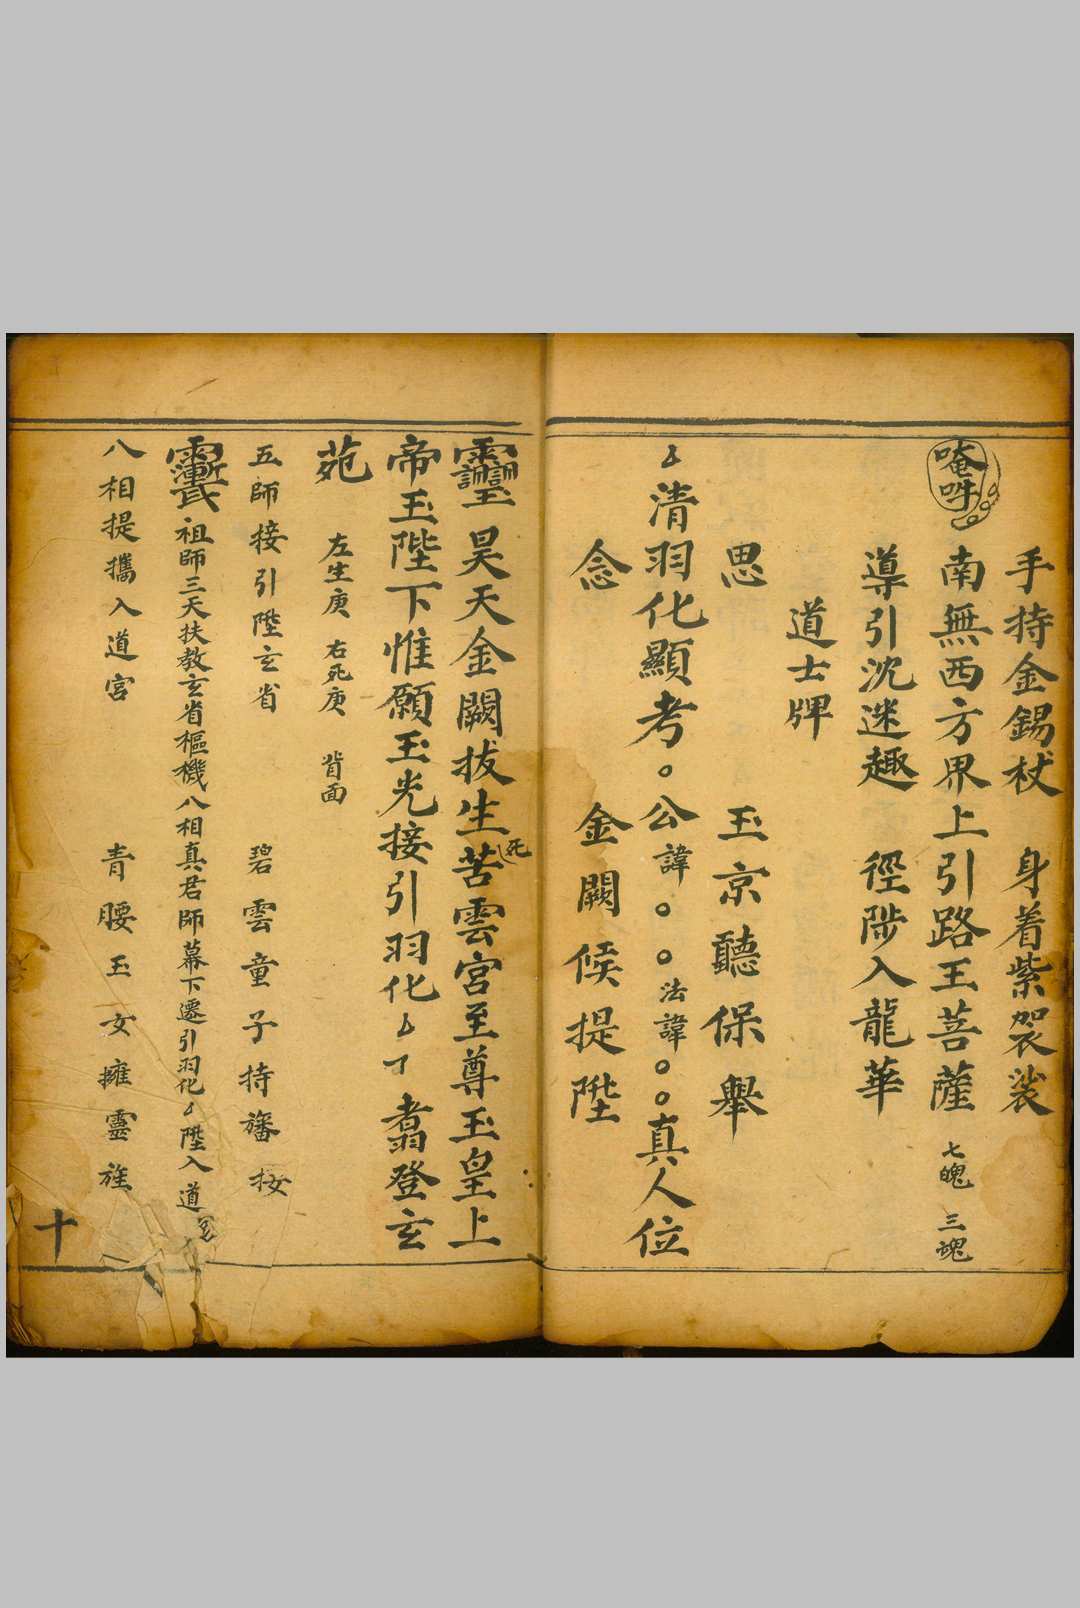 手持金錫杖　身着紫袈裟
唵吽　南無西方界上引路王菩薩　七魄　三魂
導引沈迷趣　徑陟入龍華
道士牌
思　玉京聽保舉
清羽化顯考。公諱。。法諱。。真人位
念　金闕候提陞
昊天金闕拔生死苦雲宮至尊玉皇上
帝玉陛下惟願玉光接引羽化　翥登玄
苑　左生庚　右死庚　背面
五師接引陞玄省　碧雲童子持旛接
祖師三天扶教玄省樞機八相真君師幕下遷引羽化　陞入道宮
八相提攜入道宮　青腰玉女擁靈旌
十